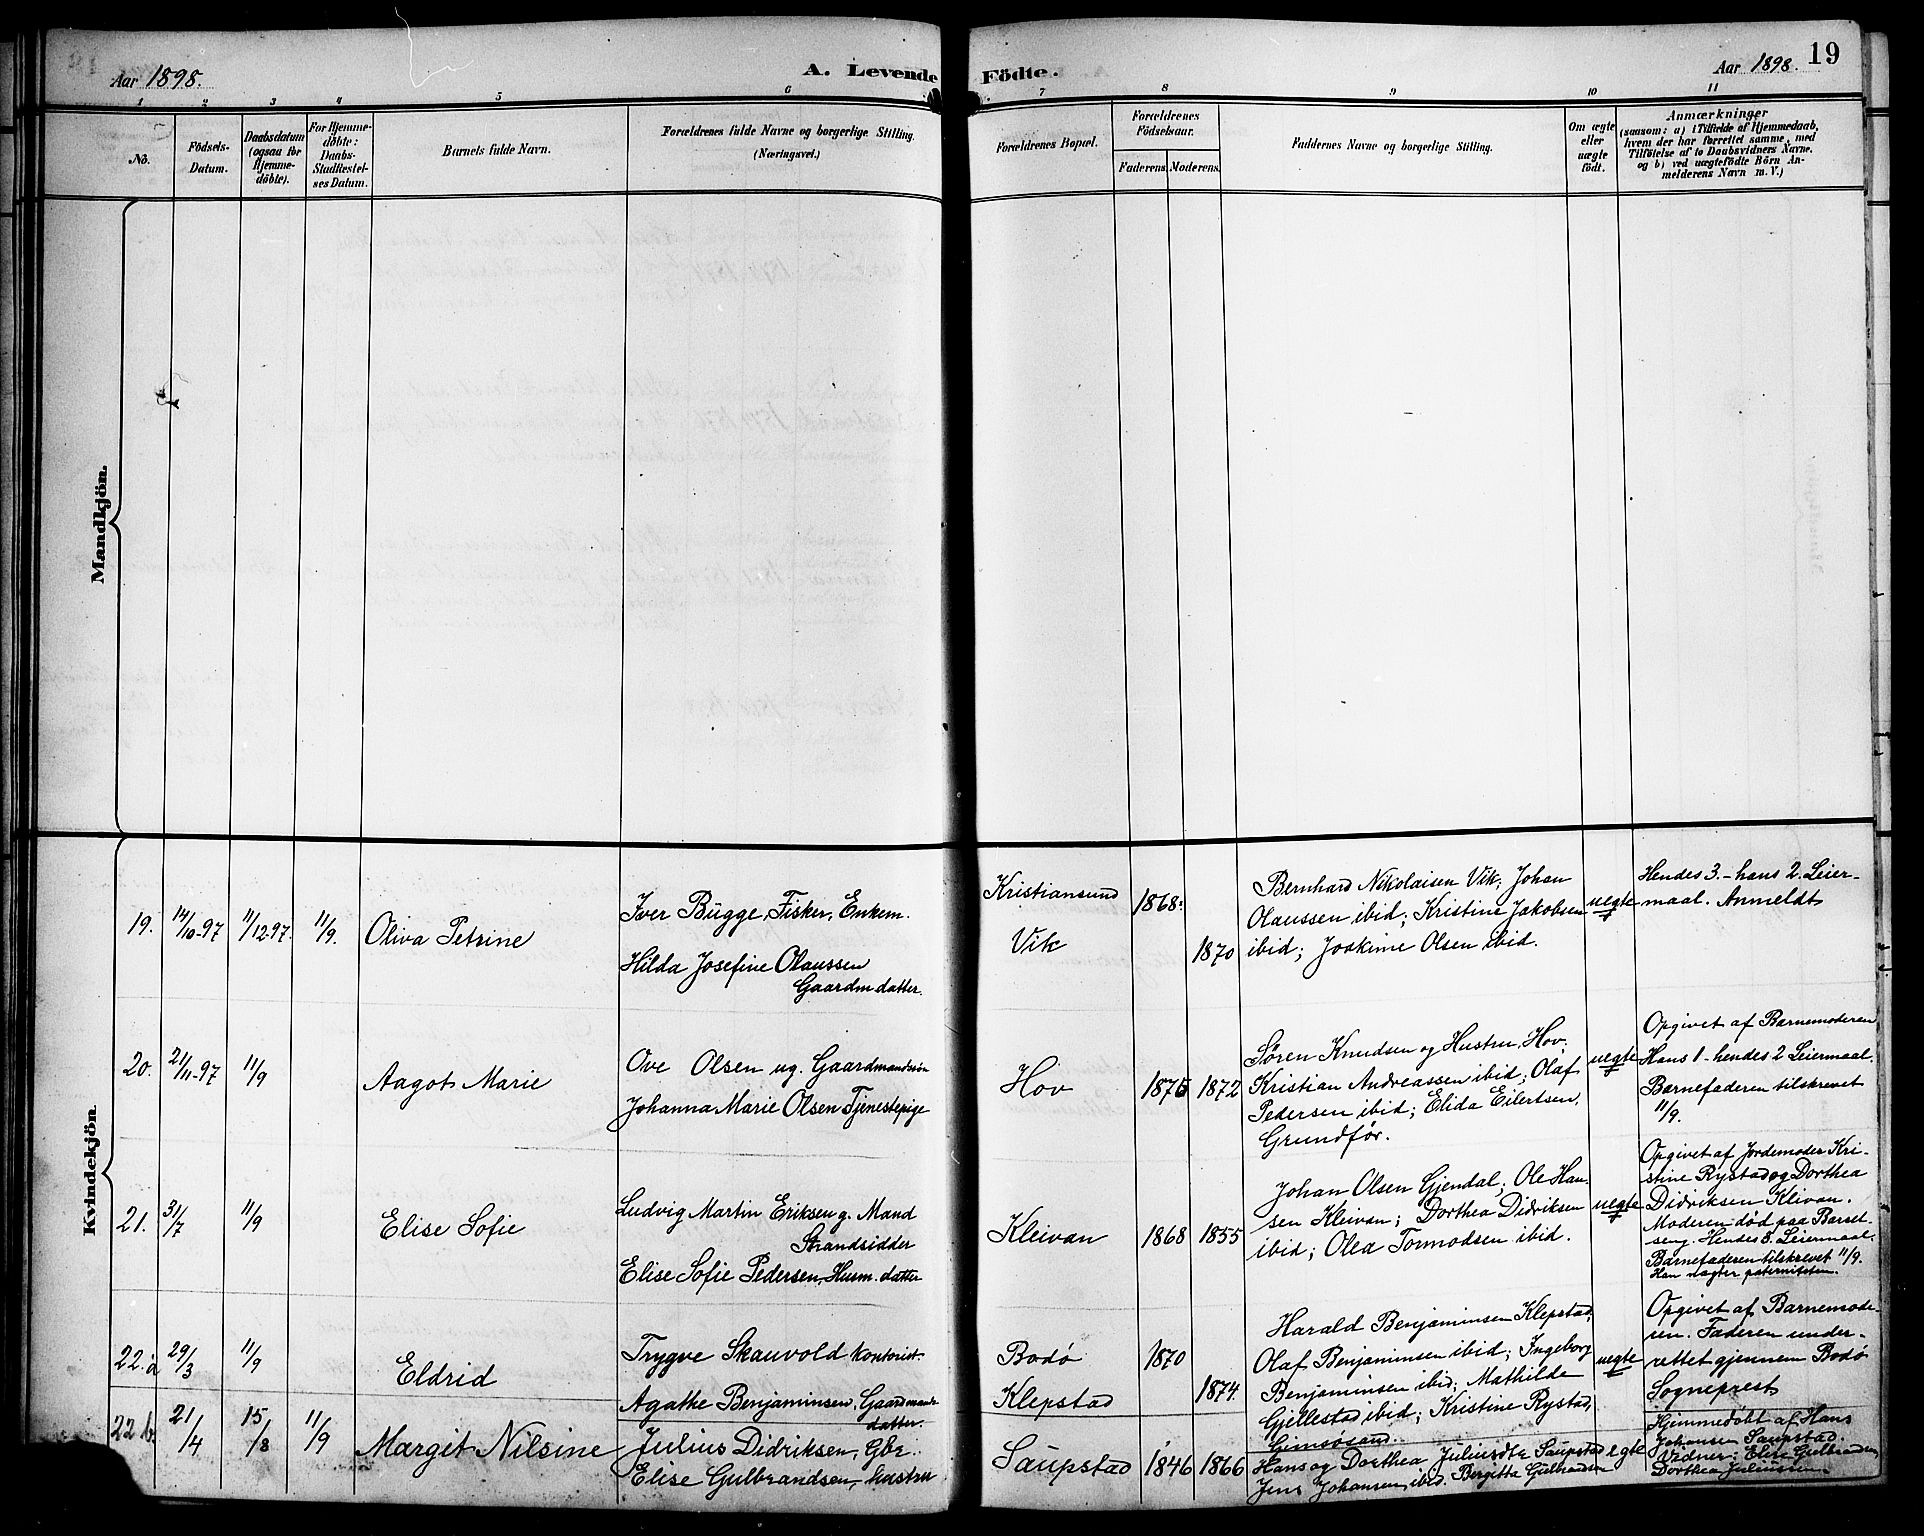 Aar 1898.
A. Levende Födte.
Aar 1898. 19
1 2 3 4 5 6 7 8 9 10 11
No.
Födsels-
Datum.
Daabsdatum
(ogsaa for
Hjemme-
döbte).
For Hjemme-
döbte:
Daabs-
Stadfæstel-
ses Datum.
Barnets fulde Navn.
Forældrenes fulde Navne og borgerlige Stilling.
(Næringsvei.)
Forældrenes Bopæl.
Forældrenes
Födselsaar.
Faderens. Moderens.
Faddernes Navne og borgerlige Stilling.
Om ægte
eller
uægte
födt.
Anmærkninger
(saasom: a) i Tilfælde af Hjemmedaab,
hvem der har forrettet samme, med
Tilföielse af to Daabsvidners Navne,
og b) ved uægtefödte Börn An-
melderens Navn m. V.)
Mandkjön.
Kvindekjön.
19. 14/10-97 11/12-97. 11/9. Oliva Petrine
Iver Bugge, Fisker, Enkem.
Hilda Josefine Olaussen
Gaardm datter.
Kristiansund 1868.
Vik 1870
Bernhard Nikolaisen Vik; Johan
Olaussen ibid; Kristine Jakobsen
ibid; Joakime Olsen ibid.
uegte
Hendes 3.- hans 2. Leier-
maal. Anmeldt
20. 21/11-97 11/9 Aagot Marie
Ove Olsen ug. Gaardmandssøn
Johanna Marie Olsen Tjenestepige
Hov 1875 1872
Søren Knudsen og Hustru, Hov;
Kristian Andreassen ibid; Olaf
Pedersen ibid; Elida Eilertsen,
Grundfør.
uegte
Opgivet af Barnemoderen
Hans 1 - hendes 2 Leiermaal.
Barnefaderen tilskrevet
11/9.
21. 31/7 11/9 Elise Sofie
Ludvig Martin Eriksen g. Mand
Strandsidder
Elise Sofie Pedersen, Husm. datter
Kleivan 1868 1855
Johan Olsen Gjendal; Ole Han-
sen Kleivan; Dorthea Didriksen
ibid; Olea Tormodsen ibid.
uegte
Opgivet af Jordemoder Kri-
stine Rystad og Dorthea
Didriksen Klivan.
Moderen død paa Barsel-
seng. Hendes 8. Leiermaal.
Barnefaderen tilskrevet 11/9.
Han nægter paterniteten.
22.a 29/3 11/9 Eldrid
Trygve Skauvold Kontorist.
Agathe Benjaminsen, Gaardmands
datter.
Bodø 1870
Klepstad 1874
Harald Benjaminsen Klepstad;
Olaf Benjaminsen ibid; Ingeborg
Benjaminsen ibid; Mathilde
Gjellestad ibid; Kristine Rystad,
Gimsøsand.
uegte
Opgivet af Barnemode-
ren. Faderen under-
rettet gjennem Bodø
Sogneprest
22 b. 21/4 15/8 11/9 Margit Nilsine
Julius Didriksen, Gbr.
Elise Gulbrandsen, hustru
Saupstad 1846 1866
Hans og Dorthea Juliusdtr Saupstad
Jens Johansen, ibid. Bergitta Gulbrandsen
egte
Hjemmedøbt af Hans
Johansen Saupstad.
Vidner: Elise Gulbrandsen,
Dorthea Juliussen.